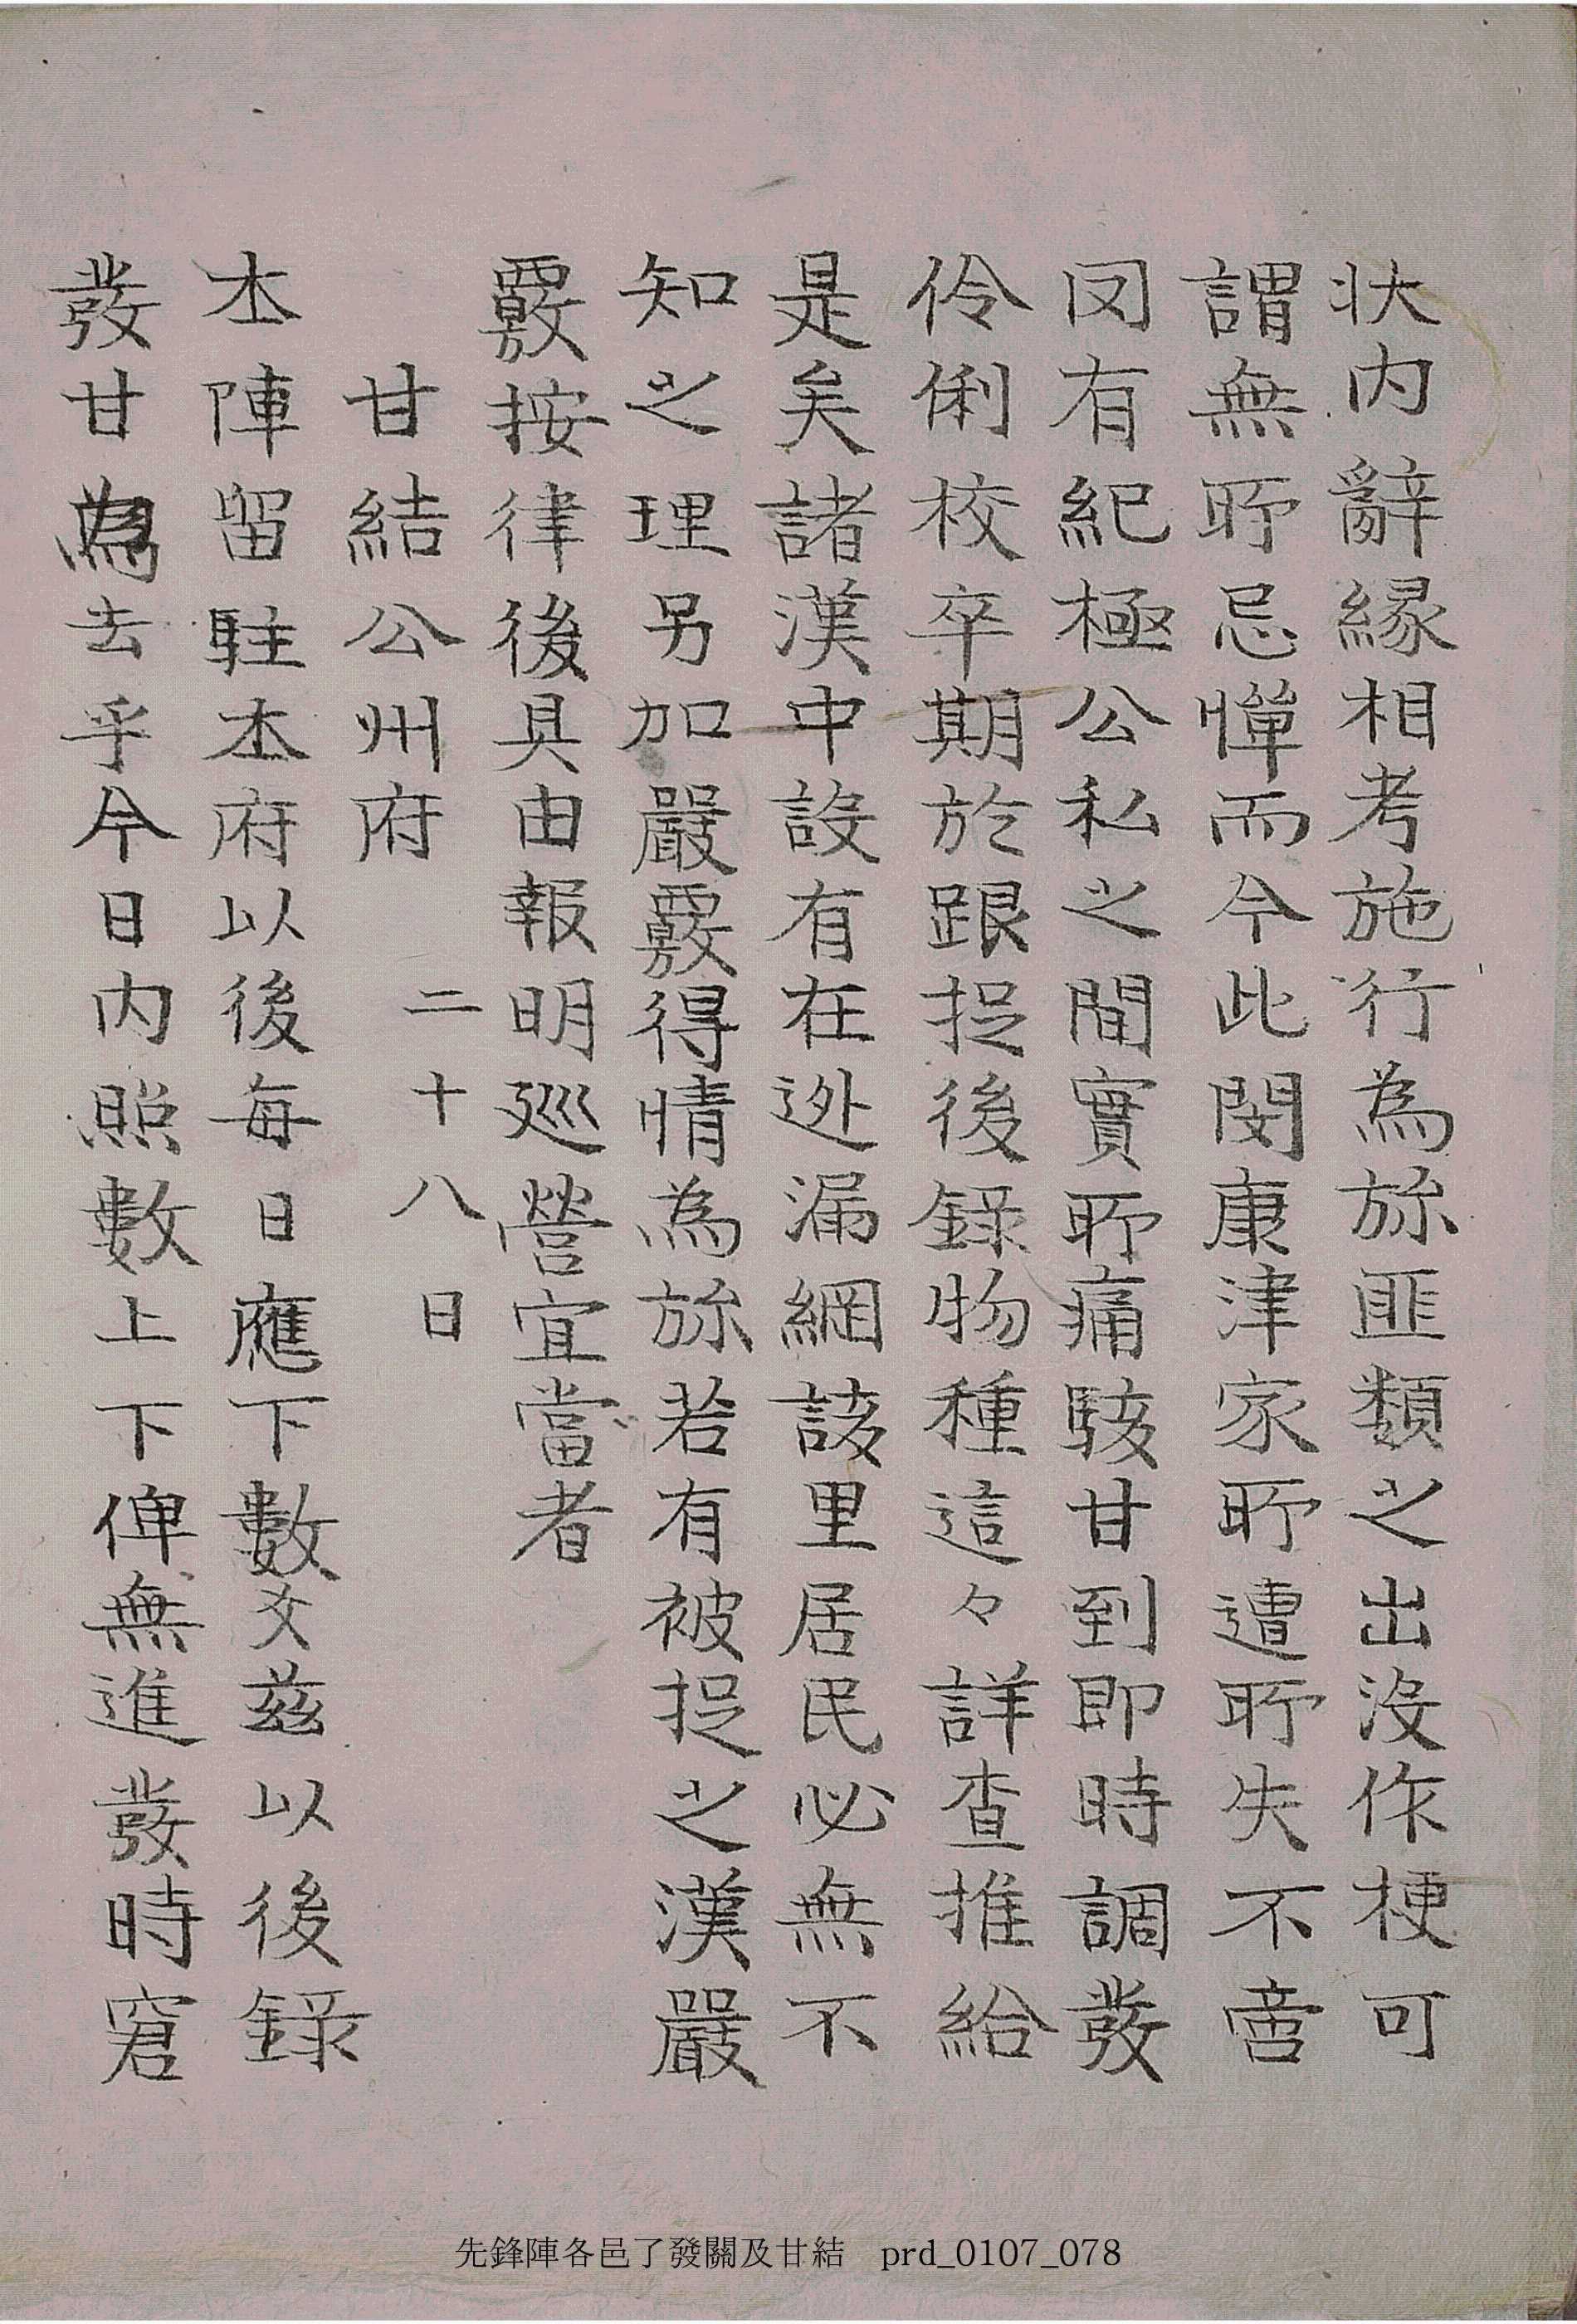 狀內辭緣相考施行為旀匪類之出沒作梗可
謂無所忌憚而今此閔康津家所遭所失不啻
罔有紀極公私之間實所痛駭甘到卽時調發
伶俐校卒期於跟捉後錄物種這々詳查推給
是矣諸漢中設有在逃漏網該里居民必無不
知之理另加嚴覈得情為旀若有被捉之漢嚴
覈按律後具由報明巡營宜當者
甘結公州府 二十八日
本陣留駐本府以後每日應下數爻茲以後錄
發甘為去乎今日內照數上下俾無進發時窘
先鋒陣各邑了發關及甘結 prd_0107_078